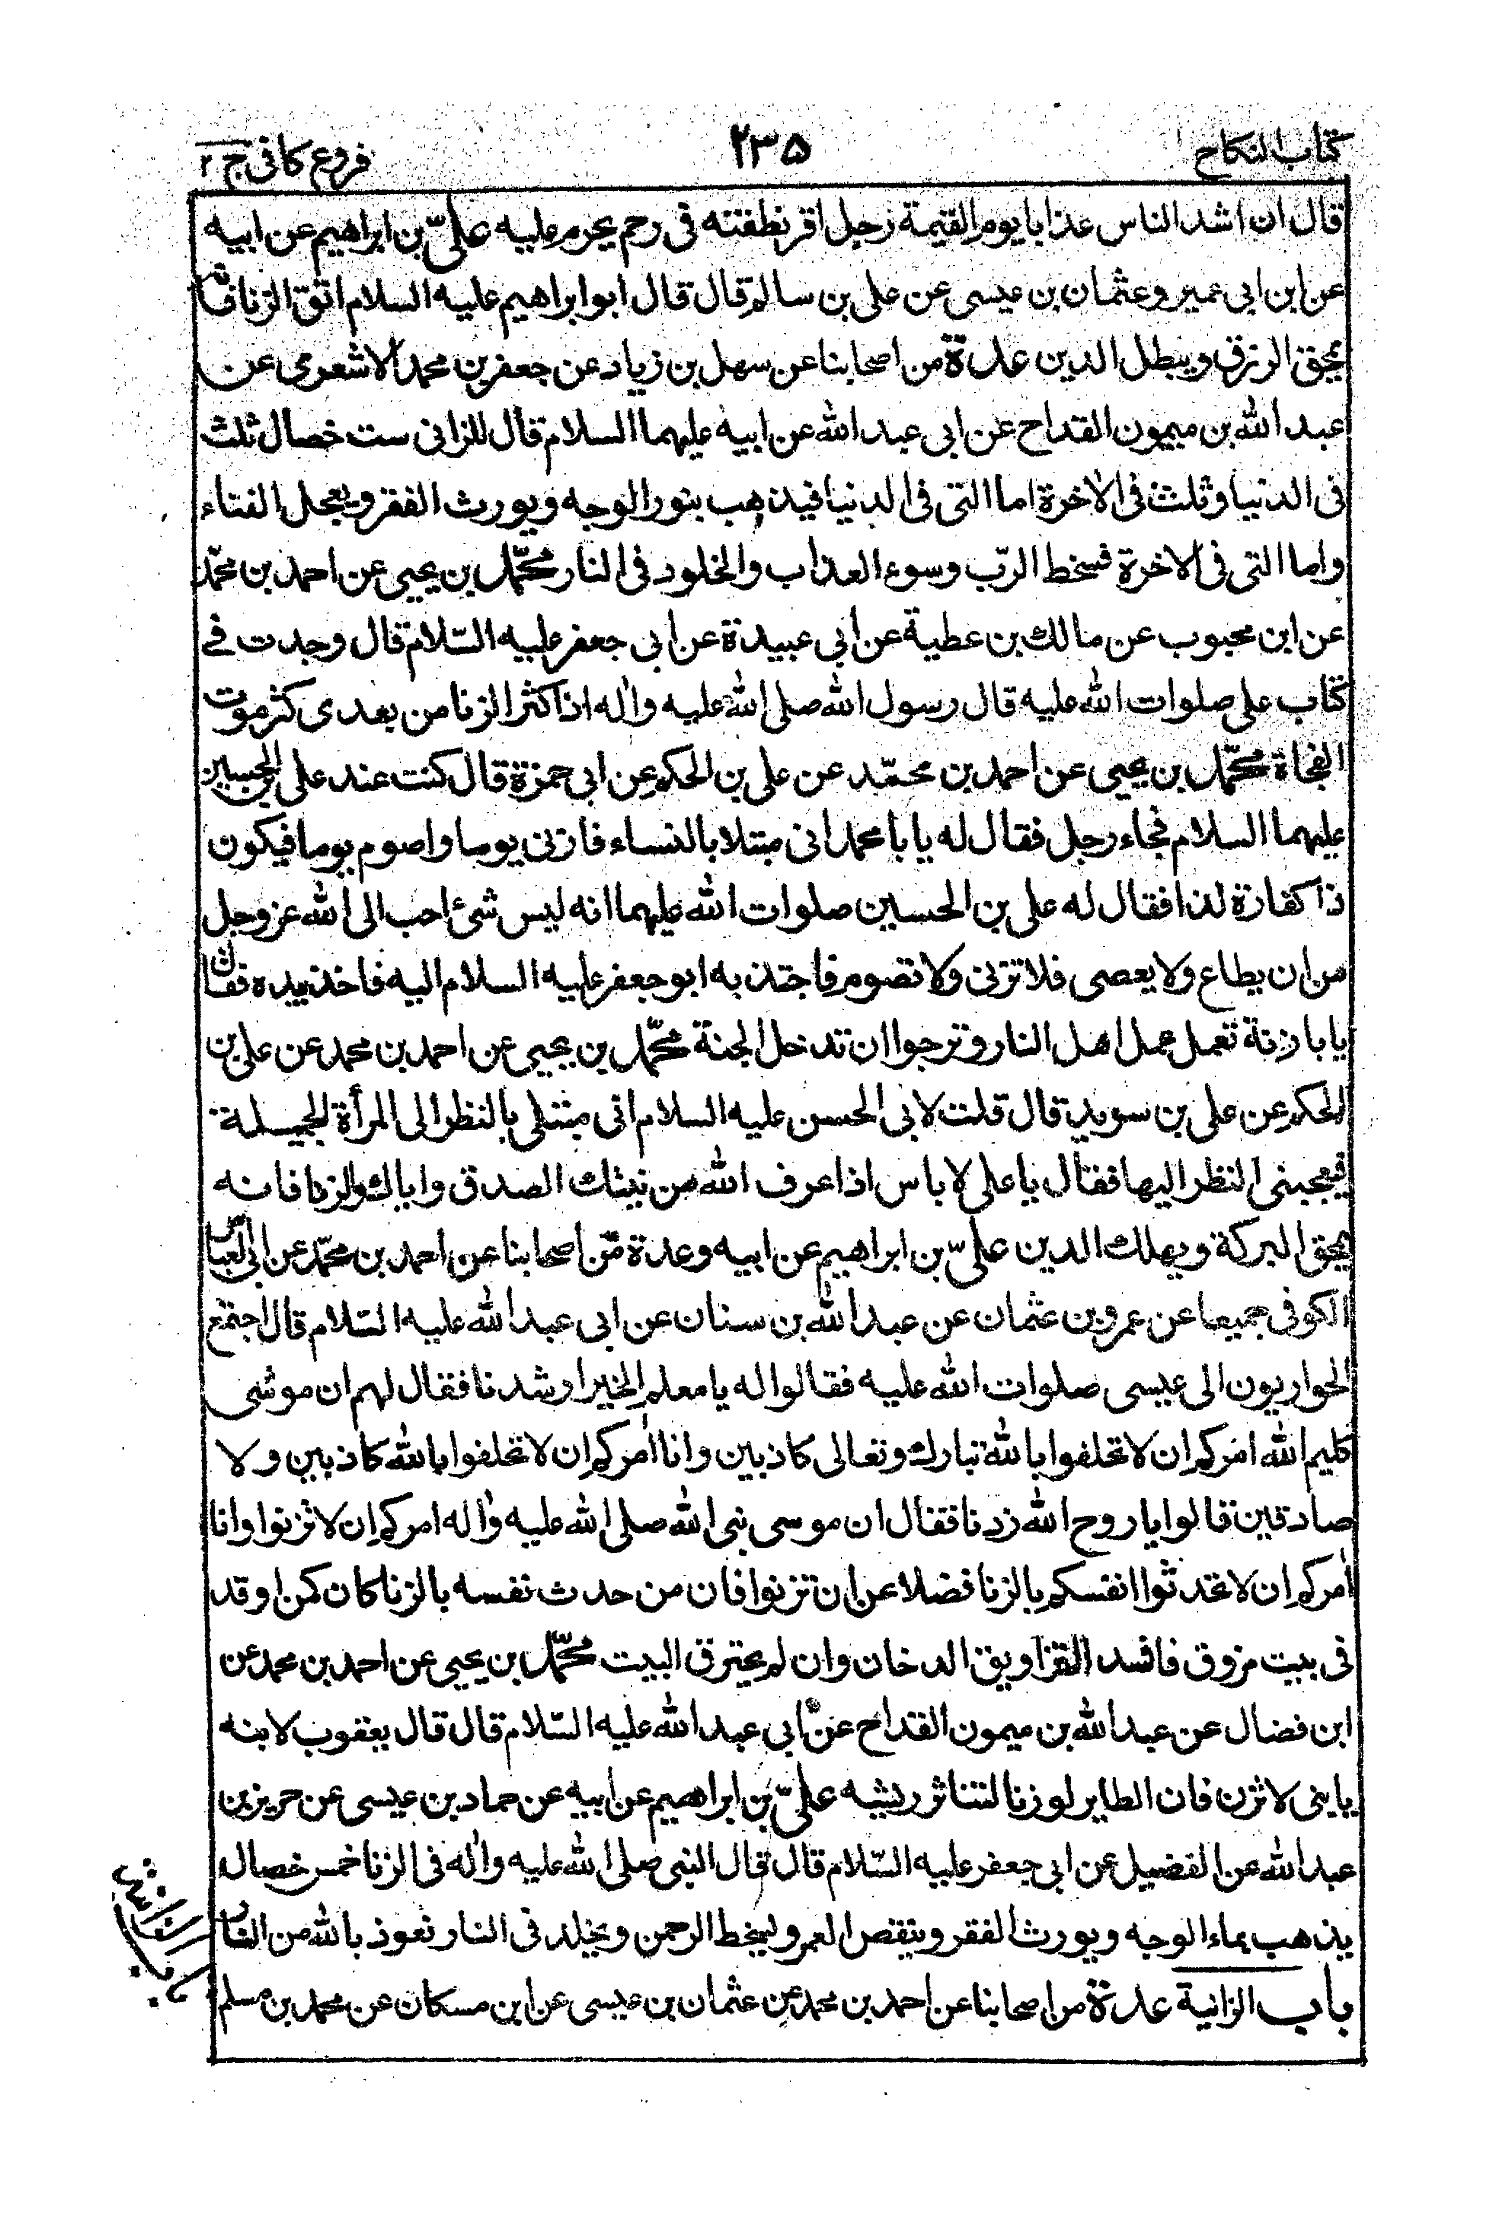 كتاب النكاح ٢٣٥ فروع كافى ج ٢
قال ان اشد الناس عذابا يوم القيمة رجل اقر نطفته فى رحم يحرم عليه علىّ بن ابراهيم عن ابيه
عن ابن ابى عمير وعثمان بن عيسى عن على بن سالم قال قال ابو ابراهيم عليه السلام اتق الزنا فانه
يمحق الرزق ويبطل الدين عدة من اصحابنا عن سهل بن زياد عن جعفر بن محمد الاشعرى عن
عبد الله بن ميمون القداح عن ابى عبد الله عن ابيه عليهما السلام قال للزانى ست خصال ثلث
فى الدنيا وثلث فى الاخرة اما التى فى الدنيا فيذهب بنور الوجه ويورث الفقر ويعجل الفناء
واما التى فى الاخرة فسخط الربّ وسوء العذاب والخلود فى النار محمّد بن يحيى عن احمد بن محمّد
عن ابن محبوب عن مالك بن عطية عن ابى عبيدة عن ابى جعفر عليه السّلام قال وجدت فى
كتاب على صلوات الله عليه قال رسول الله صلى الله عليه واله اذا كثر الزنا من بعدى كثر موت
الفجاة محمّد بن يحيى عن احمد بن محمّد عن على بن الحكم عن ابى حمزة قال كنت عند على بن الحسين
عليهما السلام فجاء رجل فقال له يا با محمد انى مبتلا بالنساء فازنى يوما واصوم يوما فيكون
ذا كفارة لذا فقال له على بن الحسين صلوات الله عليهما انه ليس شئ احب الى الله عز وجل
من ان يطاع ولا يعصى فلا تزنى ولا تصوم فاجتذبه ابو جعفر عليه السلام اليه فاخذ بيده فقال
يا با زنة تعمل عمل اهل النار وترجوا ان تدخل الجنة محمّد بن يحيى عن احمد بن محمد عن على بن
الحكم عن على بن سويد قال قلت لابى الحسن عليه السلام انى مبتلى بالنظر الى المرأة الجميلة
فيعجبنى النظر اليها فقال يا على لا باس اذا عرف الله من نيتك الصدق واياك والزنا فانه
يمحق البركة ويهلك الدين علىّ بن ابراهيم عن ابيه وعدة من اصحابنا عن احمد بن محمّد عن ابى العباس
الكوفى جميعا عن عمرو بن عثمان عن عبد الله بن سنان عن ابى عبد الله عليه السّلام قال اجتمع
الحواريون الى عيسى صلوات الله عليه فقالوا له يا معلم الخير ارشدنا فقال لهم ان موسى
كليم الله امركم ان لا تحلفوا بالله تبارك وتعالى كاذبين وانا امركم ان لا تحلفوا بالله كاذبين ولا
صادقين قالوا يا روح الله زدنا فقال ان موسى نبى الله صلى الله عليه واله امركم ان لا تزنوا وانا
امركم ان لا تحدثوا انفسكم بالزنا فضلا عن ان تزنوا فان من حدث نفسه بالزنا كان كمن اوقد
فى بيت مزوق فافسد التزاويق الدخان وان لم يحترق البيت محمّد بن يحيى عن احمد بن محمد عن
ابن فضال عن عبد الله بن ميمون القداح عن ابى عبد الله عليه السّلام قال قال يعقوب لابنه
يا بنى لا تزن فان الطاير لو زنا لتناثر ريشه علىّ بن ابراهيم عن ابيه عن حماد بن عيسى عن حريز بن
عبد الله عن الفضيل عن ابى جعفر عليه السّلام قال قال النبى صلى الله عليه واله فى الزنا خمس خصال
يذهب بماء الوجه ويورث الفقر وينقص العمر ويسخط الرحمن ويخلد فى النار نعوذ بالله من النار
باب الزانية عدة من اصحابنا عن احمد بن محمد عن عثمان بن عيسى عن ابن مسكان عن محمد بن مسلم